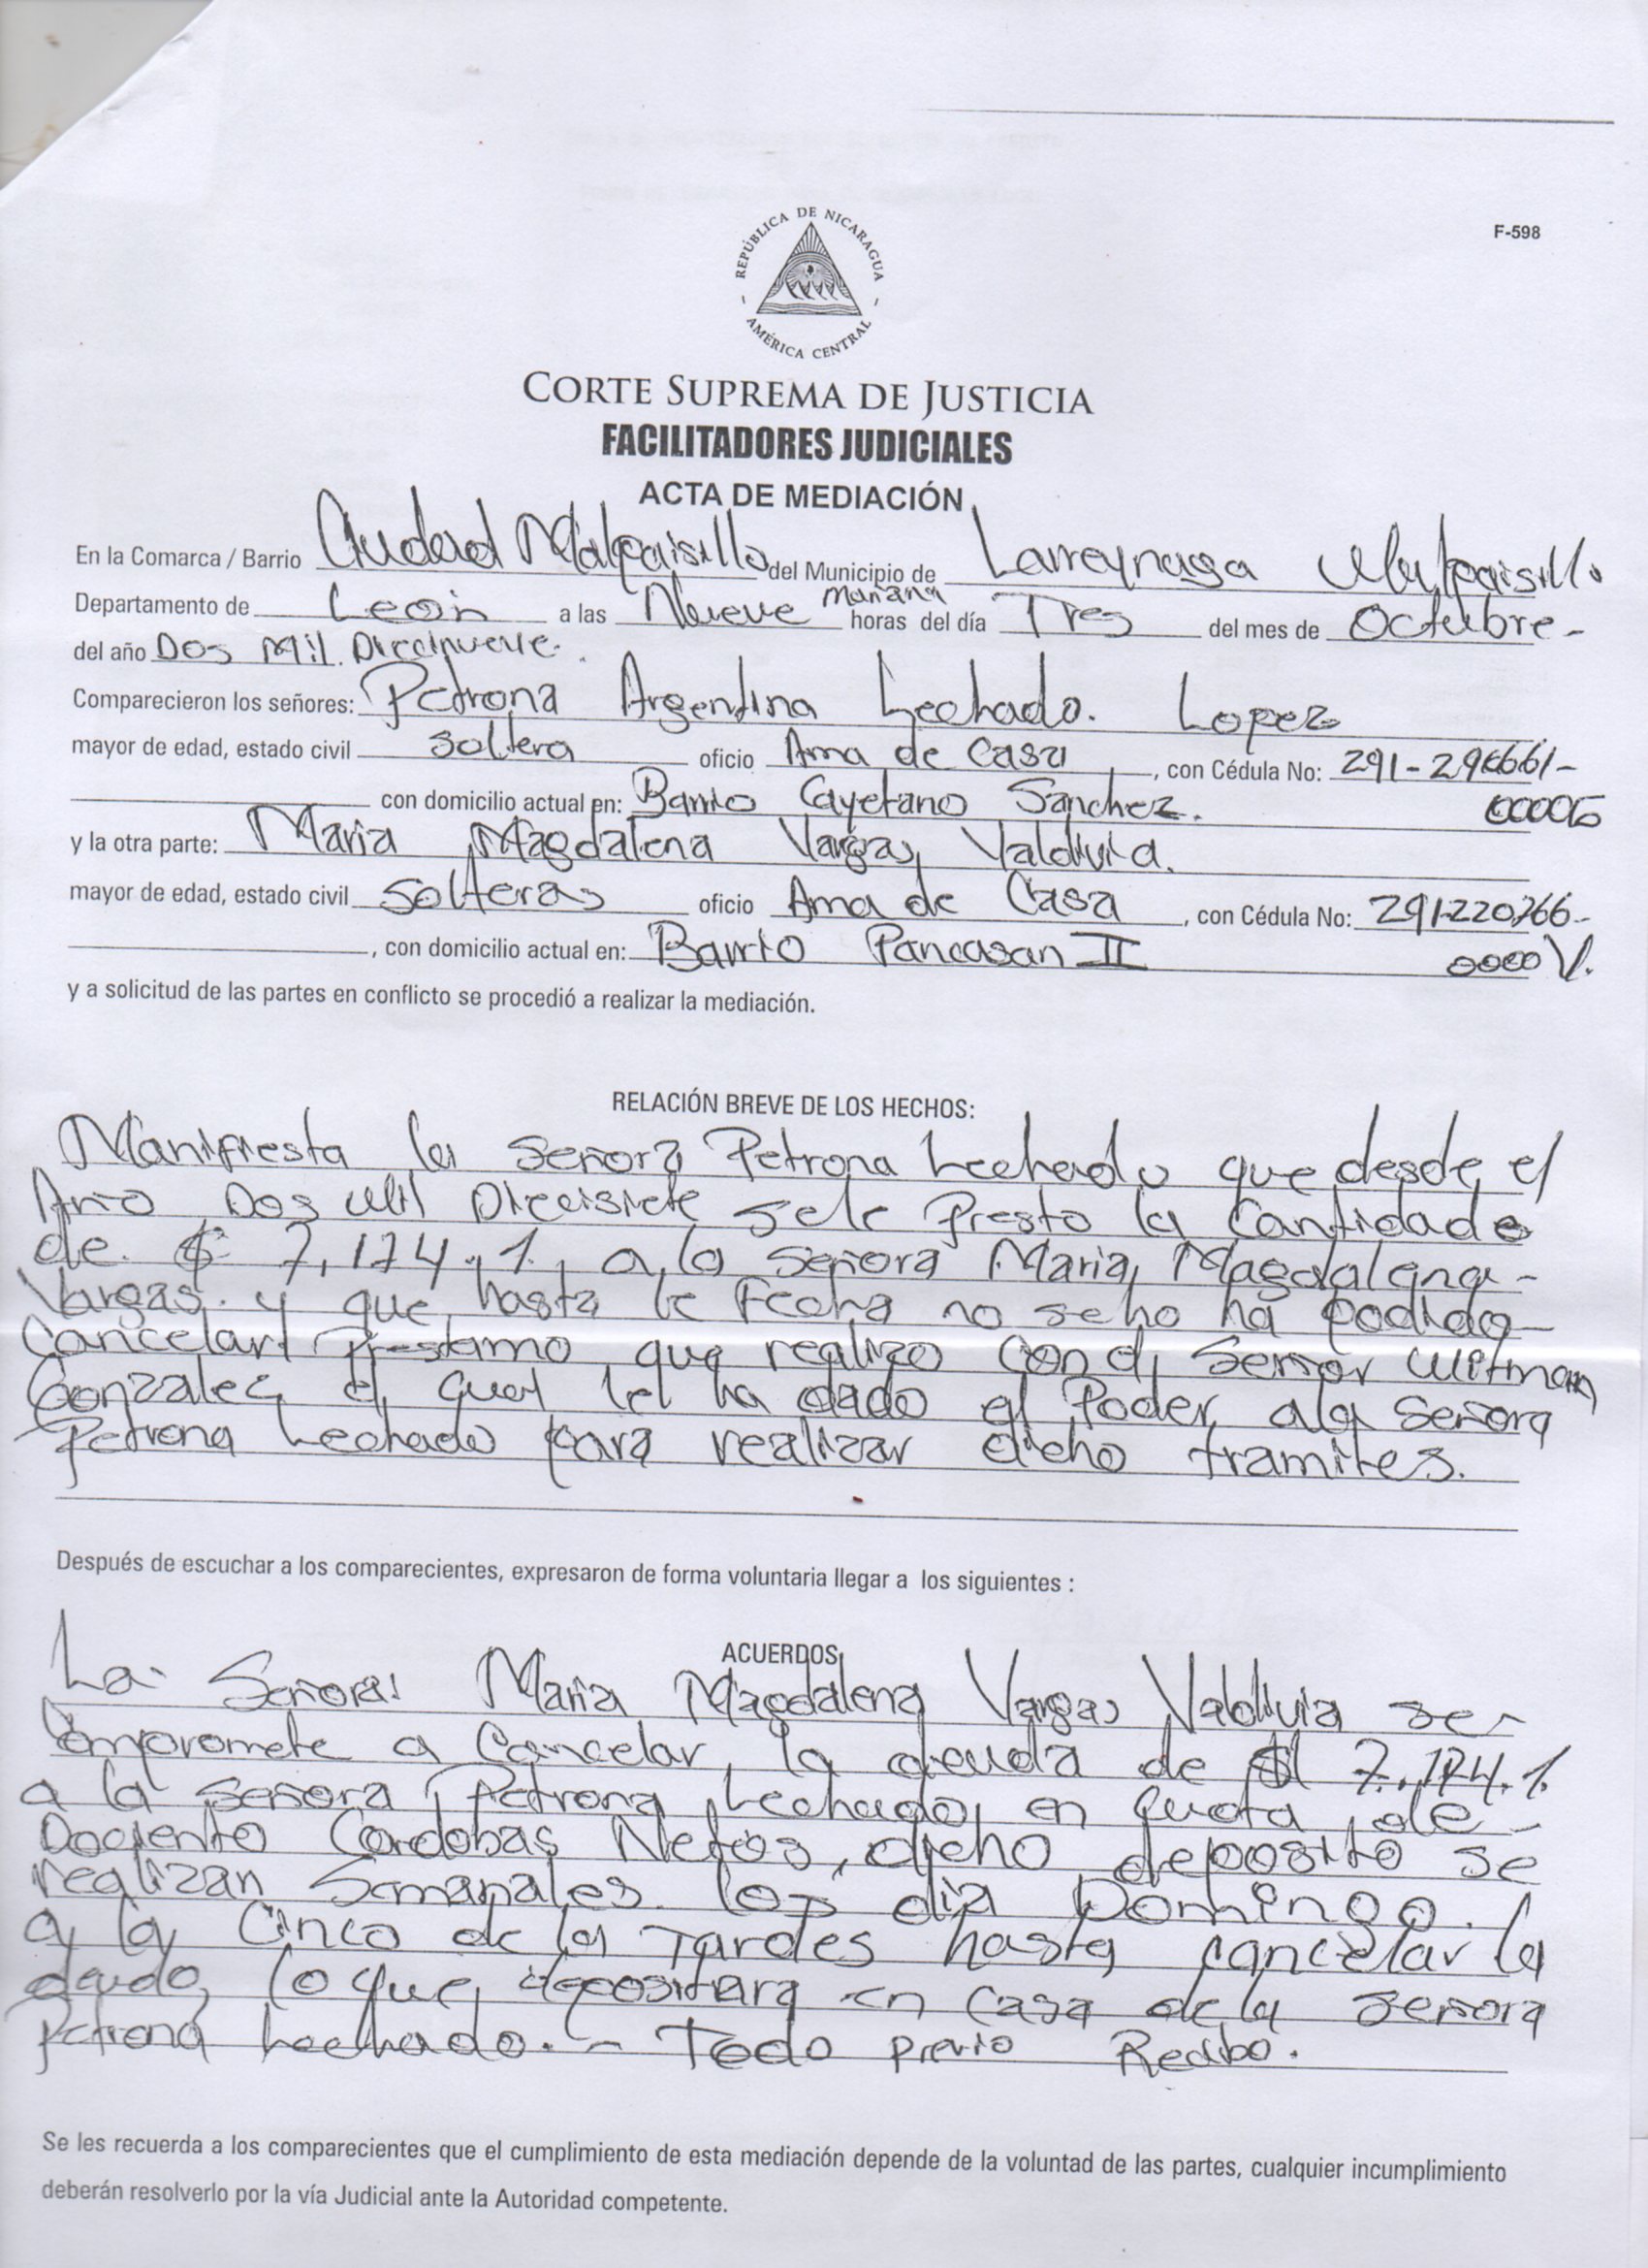 REPÚBLICA DE NICARAGUA
AMÉRICA CENTRAL
F-598
CORTE SUPREMA DE JUSTICIA
FACILITADORES JUDICIALES
ACTA DE MEDIACIÓN
En la Comarca / Barrio Ciudad Malpaisillo del Municipio de Larreynaga Malpaisillo
Departamento de León a las Nueve mañana horas del día Tres del mes de Octubre-
del año Dos Mil Diecinueve.
Comparecieron los señores: Petrona Argentina Lechado. Lopez
mayor de edad, estado civil soltera oficio Ama de Casa, con Cédula No: 291-
con domicilio actual en: Barrio Cayetano Sanchez.
y la otra parte: Maria Magdalena Vargas Valdivia.
mayor de edad, estado civil solteras oficio Ama de Casa, con Cédula No: 291-220766-
, con domicilio actual en: Barrio Pancasan II 0000V.
y a solicitud de las partes en conflicto se procedió a realizar la mediación.
RELACIÓN BREVE DE LOS HECHOS:
Manifiesta la señora Petrona Lechado que desde el
Año Dos Mil Diecisiete se le Presto la Cantidad
de $ 7,174.1 a la señora Maria Magdalena-
Vargas. y que hasta la Fecha no se ha podido-
Cancelar Prestamo que realizo con el Señor
Gonzalez el cual le ha dado el Poder a la Señora
Petrona Lechado para realizar dicho tramites.
Después de escuchar a los comparecientes, expresaron de forma voluntaria llegar a los siguientes :
ACUERDOS
La Señora: Maria Magdalena Vargas Valdivia se-
Compromete a Cancelar la deuda de $ 7.174.1
a la señora Petrona Lechado en quota de-
Dociento Cordobas Netos, dicho deposito se
realizan Semanales los dia Domingo.
a la Cinco de la Tardes hasta cancelar la
deuda lo que depositara en casa de la señora
Petrona Lechado. - Todo previo Recibo.
Se les recuerda a los comparecientes que el cumplimiento de esta mediación depende de la voluntad de las partes, cualquier incumplimiento
deberán resolverlo por la vía Judicial ante la Autoridad competente.